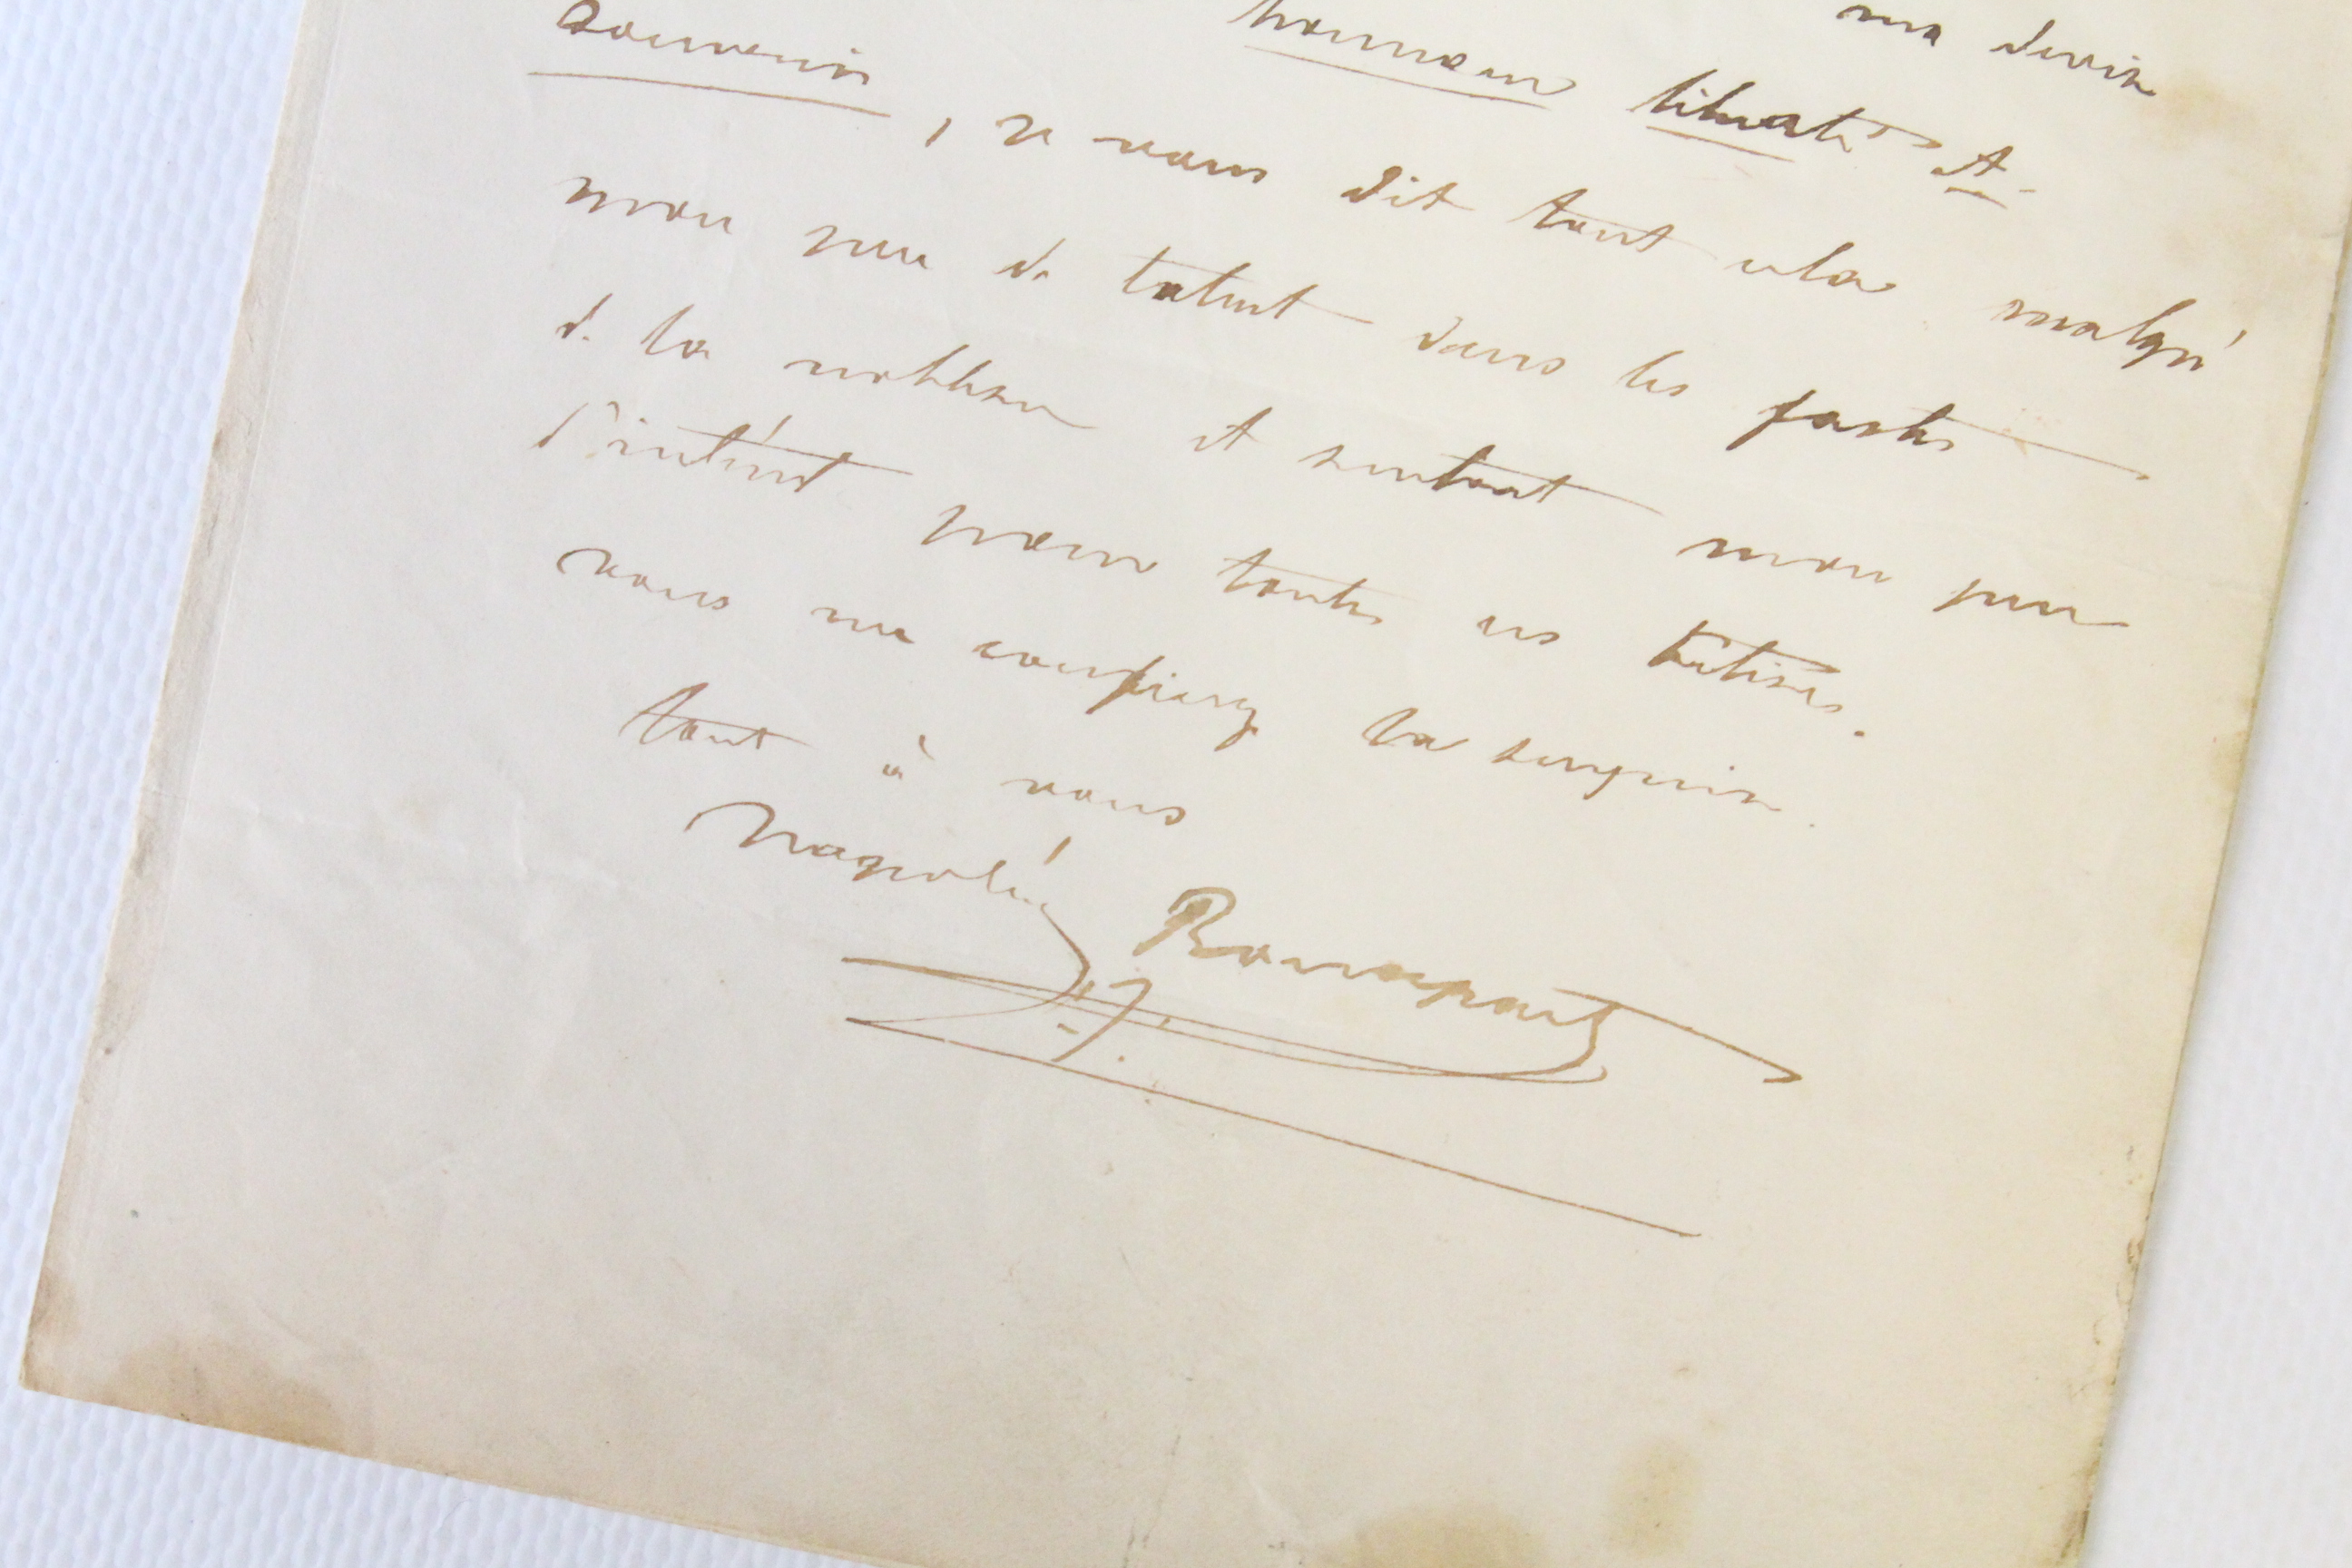 ma devise
honneur liberté et
souvenir, je vous dit tout cela malgré
mon peu de talent dans les fastes
de la noblesse et surtout mon peu
d'intérêt pour toutes ces bêtises.
vous me la
tout à vous
Napoléon Bonaparte